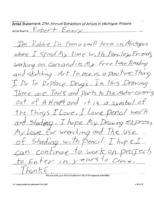 Artist Statement: 27th Annual Exhibition of Artists in Michigan Prisons
Artist Name: Robert Emory
I'm Robbie I'm from a small town in Michigan
where I spend my time with Family, Friends
working on Cars and in my Free time Reading
and sketching. Art to me is a positive Thing
I Do to replace Drugs. In this Drawing
There are Tools and Parts to the motor coming
out of a Heart and it is a symbol of
the Things I Love. I Love pencil work
and shading. I hope my Drawing expresses
my love for working and the use
of Shading with Pencil. I hope I
can continue to work on projects
to Enter in years to come.
Thanks